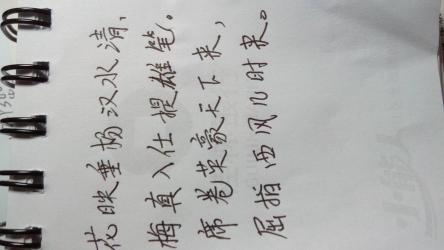 花映垂杨汉水清，
梅真入仕提雄笔。
席卷英豪天下来，
屈指西风几时来。